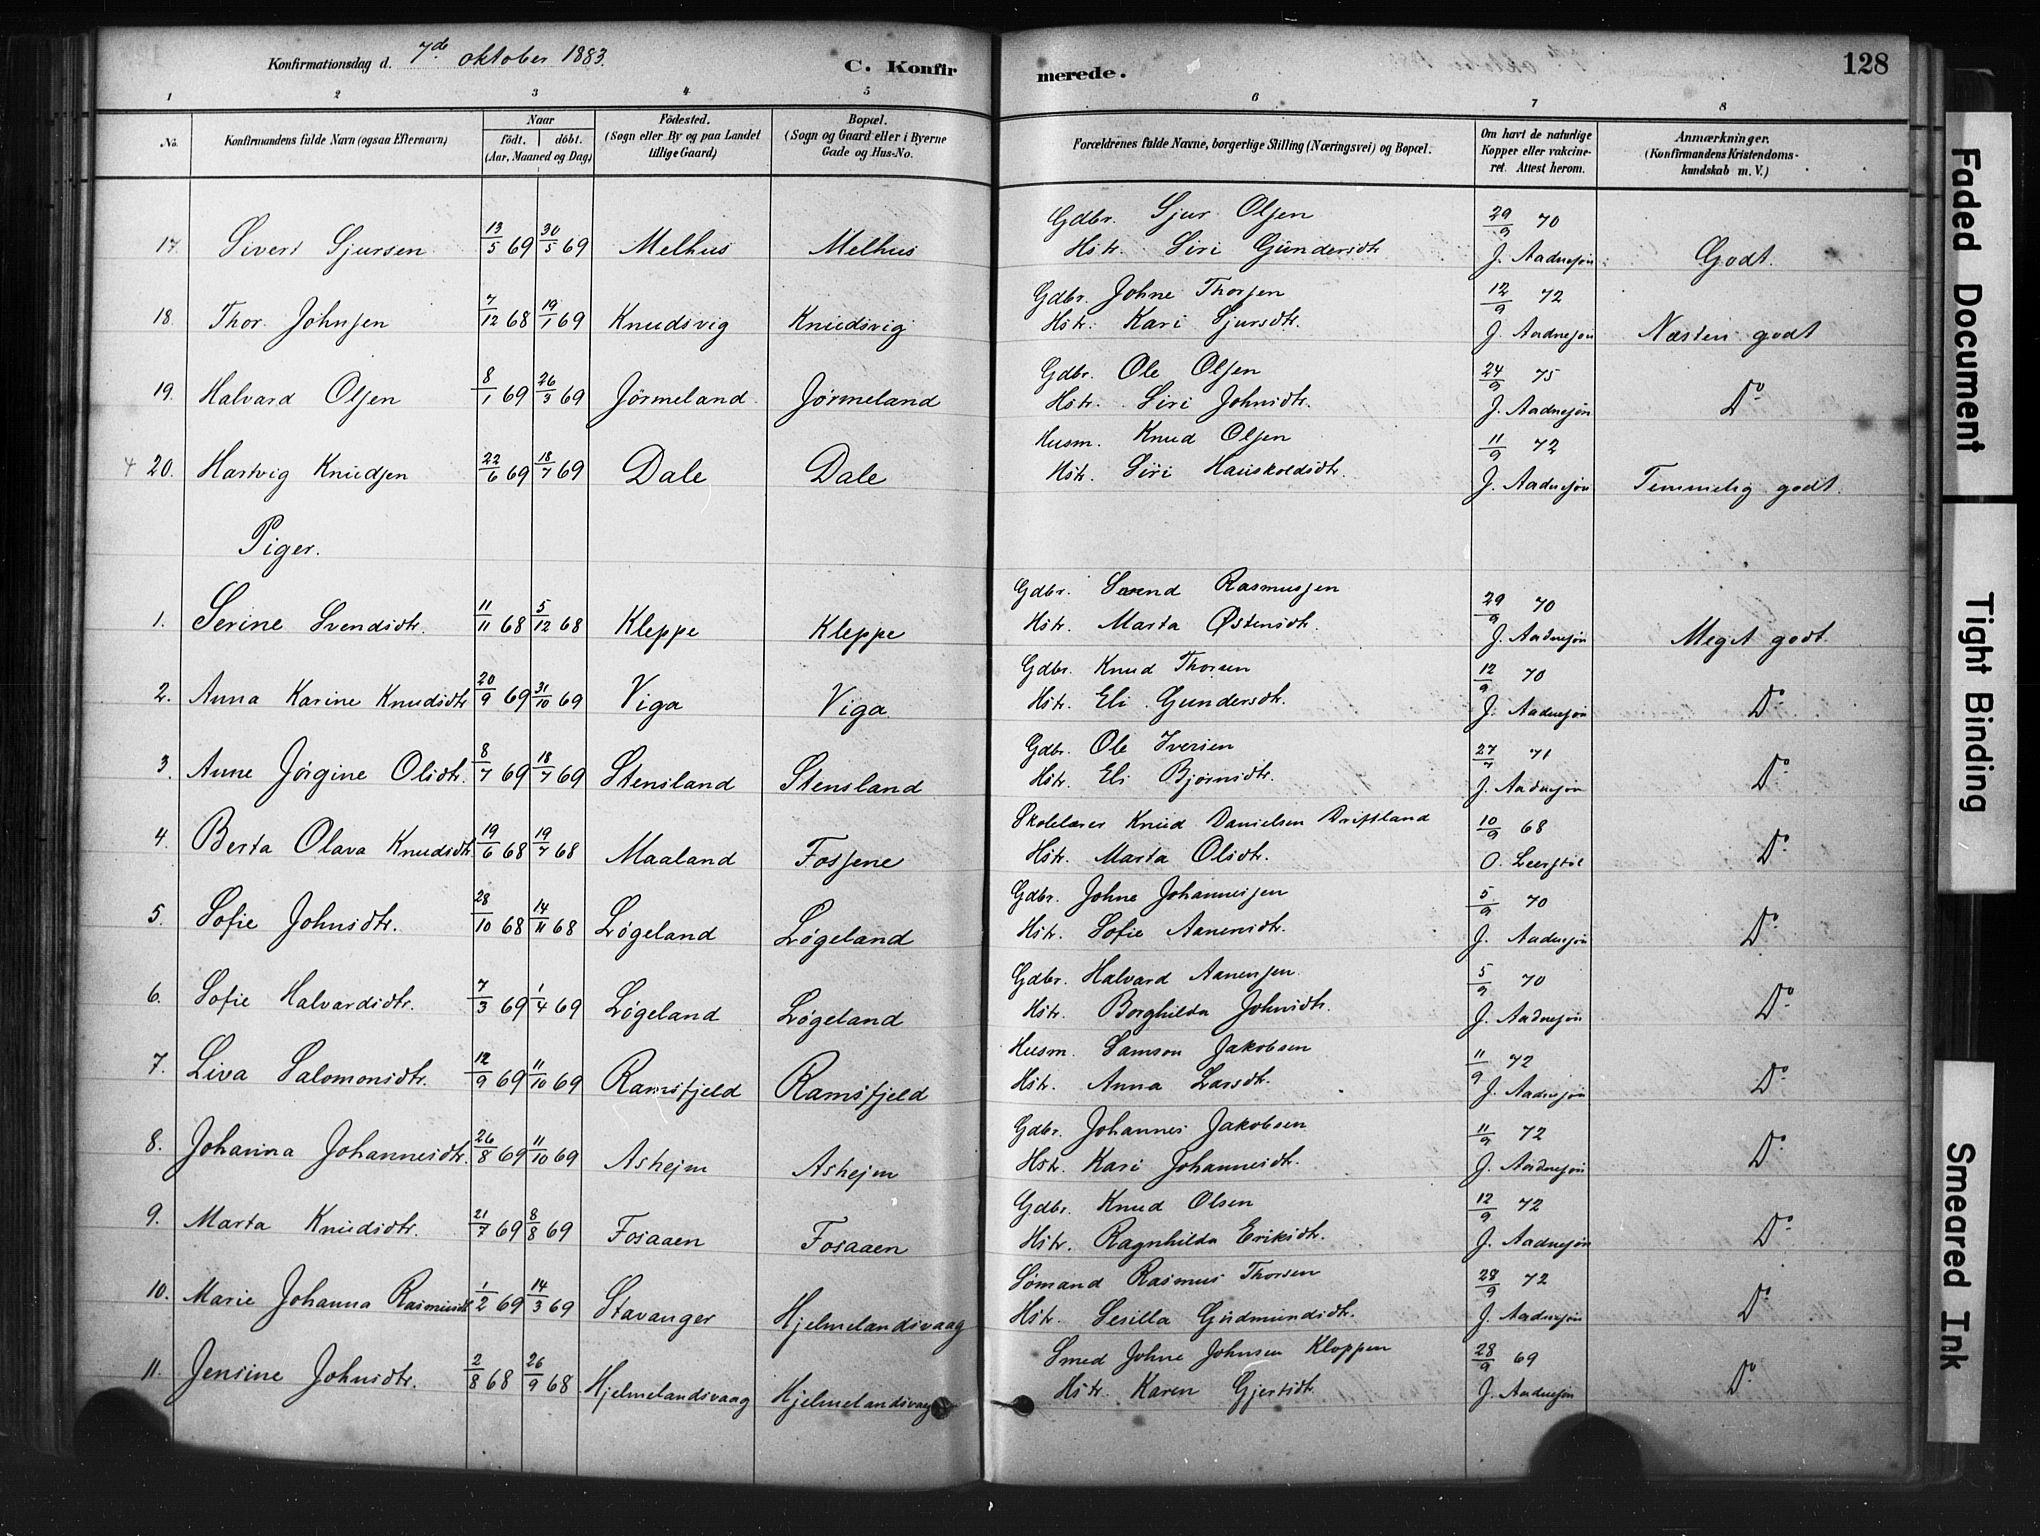 Konfirmationsdag d. 7de oktober 1883. C. Konfirmerede. 128
1 2 3 4 5 6 7 8
No. Konfirmandens fulde Navn (ogsaa Efternavn) Naar født. døbt. (Aar, Maaned og Dag) Fødested. (Sogn eller By og paa Landet tillige Gaard) Bopæl. (Sogn og Gaard eller i Byerne Gade og Hus-No. Forældrenes fulde Navne, borgerlige Stilling (Næringsvei) og Bopæl. Om havt de naturlige Kopper eller vakcineret. Attest herom. Anmærkninger. (Konfirmandens Kristendomskundskab m. V.)
17. Sivert Sjursen 13/5 69 30/5 69 Melhus Melhus Gdbr. Sjur Olsen 29/9 70
Hstr. Siri Gundersdtr. J. Aadnesøn Godt.
18. Thor Johnsen 7/12 68 19/1 69 Knudsvig Knudsvig Gdbr. Johne Thorsen 12/9 72
Hstr. Kari Sjursdtr. J. Aadnesøn Næsten godt
19. Halvard Olsen 8/1 69 26/3 69 Jørmeland Jørmeland Gdbr. Ole Olsen 24/9 75
Hstr. Siri Johnsdtr. J. Aadnesøn Do
20. Hartvig Knudsen 22/6 69 18/7 69 Dale Dale Husm. Knud Olsen 11/9 72
Hstr. Siri Hauskoldsdtr. J. Aadnesøn Temmelig godt.
Piger.
1. Serine Svendsdtr. 11/11 68 5/12 68 Kleppe Kleppe Gdbr. Svend Rasmussen 29/9 70
Hstr. Marta Østensdtr. J. Aadnesøn Meget godt.
2. Anna Karine Knudsdtr 20/9 69 31/10 69 Viga Viga Gdbr. Knud Thorsen 12/9 70
Hstr. Eli Gundersdtr. J. Aadnesøn Do
3. Anne Jørgine Olsdtr. 8/7 69 18/7 69 Stensland Stensland Gdbr. Ole Iversen 27/7 71
Hstr. Eli Bjørnsdtr. J. Aadnesøn Do
4. Berta Olava Knudsdtr 19/6 68 19/7 68 Maaland Fossene Skolelærer Knud Danielsen Driftland 10/9 68
Hstr. Marta Olsdtr. O. Do
5. Sofie Johnsdtr. 28/10 68 14/11 68 Løgeland Løgeland Gdbr. Johne Johannessen 5/9 70
Hstr. Sofie Aanensdtr. J. Aadnesøn Do
6. Sofie Halvardsdtr. 7/3 69 1/4 69 Løgeland Løgeland Gdbr. Halvard Aanensen 5/9 70
Hstr. Borghilda Johnsdtr. J. Aadnesøn Do
7. Liva Salomonsdtr. 12/9 69 11/10 69 Ramsfjeld Ramsfjeld Husm. Samson Jakobsen 11/9 72
Hstr. Anna Larsdtr. J. Aadnesøn Do
8. Johanna Johannesdtr. 26/8 69 11/10 69 Askejm Askejm Gdbr. Johannes Jakobsen 11/9 72
Hstr. Kari Johannesdtr. J. Aadnesøn Do
9. Marta Knudsdtr. 21/7 69 8/8 69 Fosaaen Fosaaen Gdbr. Knud Olsen 12/9 72
Hstr. Ragnhilda Eriksdtr. J. Aadnesøn Do
10. Marie Johanna Rasmusdtr 1/2 69 14/3 69 Stavanger Hjelmelandsvaag Sømand Rasmus Thorsen 28/9 72
Hstr. Sesilla Gudmundsdtr. J. Aadnesøn Do
11. Jensine Johnsdtr. 2/8 68 26/9 68 Hjelmelandsvaag Hjelmelandsvaag Smed Johne Johnsen Kloppen 28/9 69
Hstr. Karen Gjertsdtr. J. Aadnesøn Do
Faded Document
Tight Binding
Smeared Ink